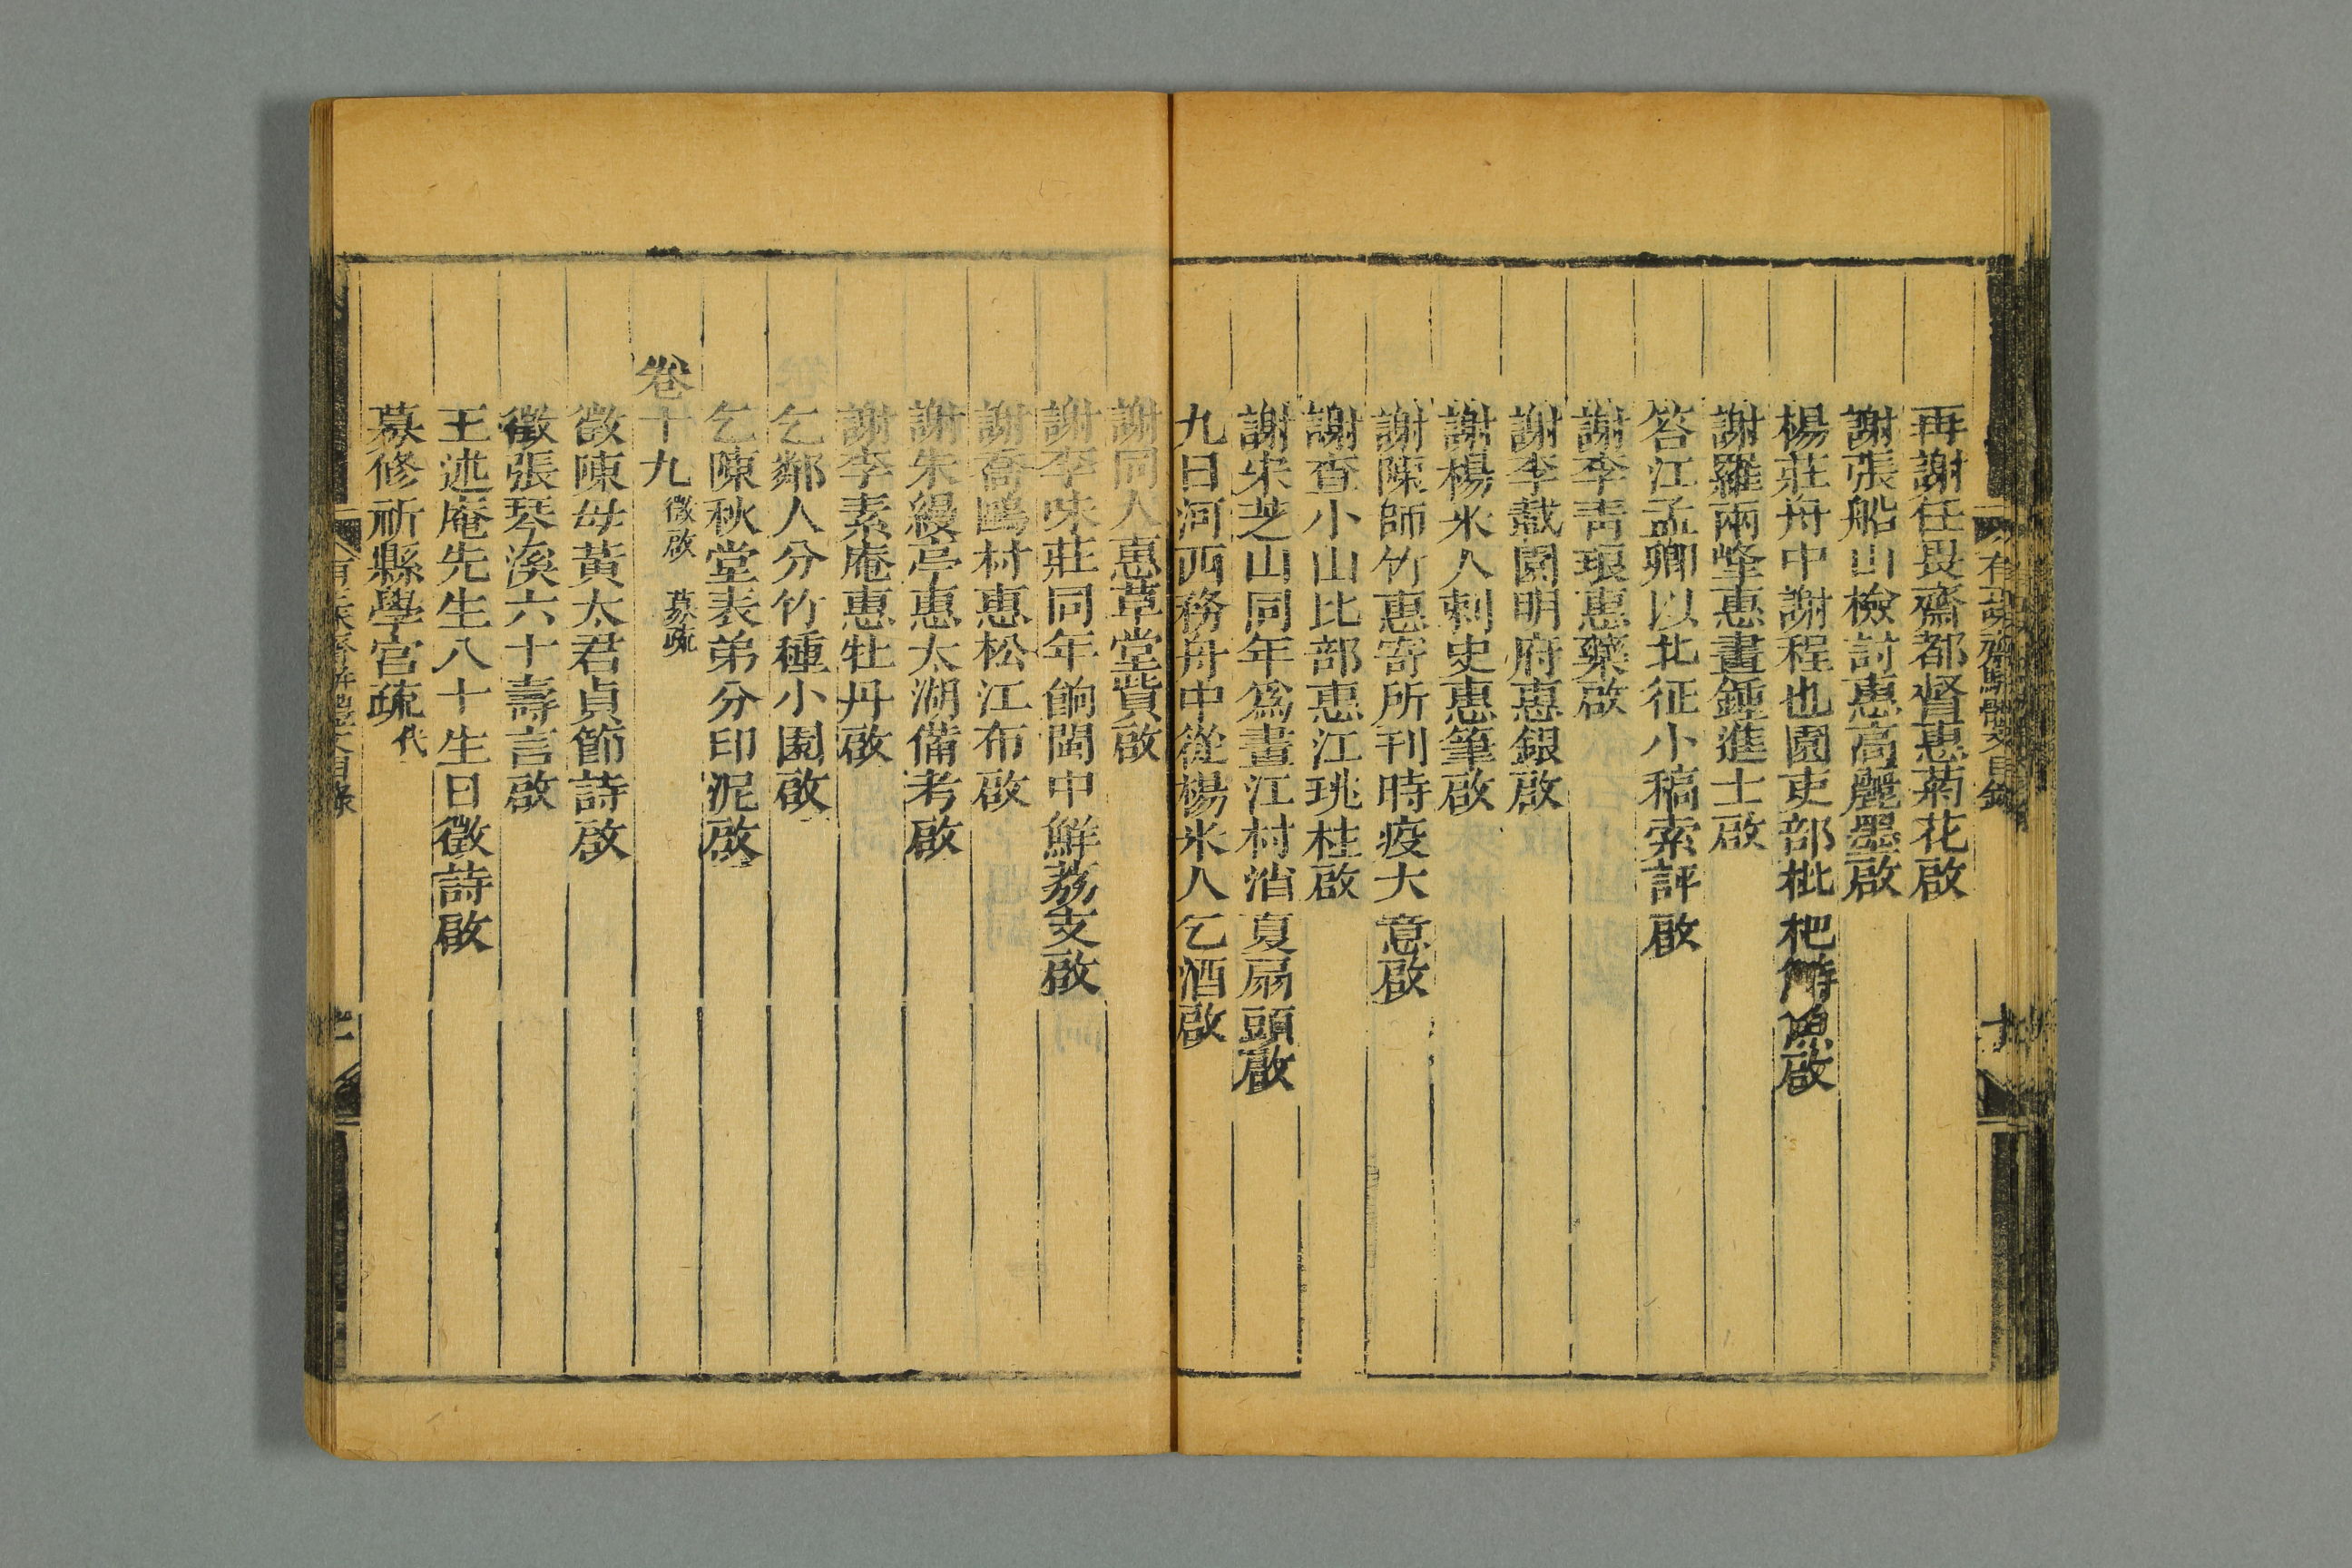 有正味齋駢體文目錄
再謝任畏齋都督惠菊花啟
謝張船山檢討惠高麗墨啟
楊莊舟中謝程也園吏部枇杷鰣魚啟
謝羅兩峰惠畫鍾進士啟
答江孟卿以北征小稿索評啟
謝李青琅惠藥啟
謝李載園明府惠銀啟
謝楊米人刺史惠筆啟
謝陳師竹惠寄所刊時疫大意啟
謝查小山比部惠江珧柱啟
謝宋芝山同年為畫江村消夏扇頭啟
九日河西務舟中從楊米人乞酒啟
謝同人惠草堂貲啟
謝李味莊同年餉閩中鮮荔支啟
謝喬鷗村惠松江布啟
謝朱縵亭惠太湖備考啟
謝李素庵惠牡丹啟
乞鄰人分竹種小園啟
乞陳秋堂表弟分印泥啟
卷十九 徵啟 募疏
徵陳母黃太君貞節詩啟
徵張琴溪六十壽言啟
王述庵先生八十生日徵詩啟
募修祈縣學官疏 代